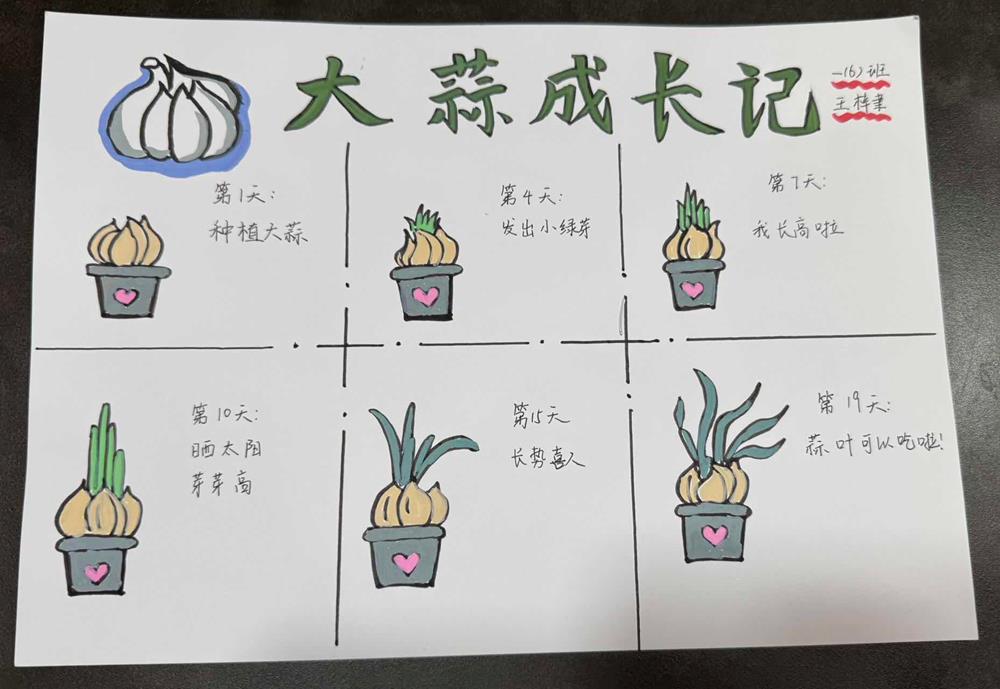 大蒜成长记
一(6)班
王梓聿
第1天:
种植大蒜
第4天:
发出小绿芽
第7天:
我长高啦
第10天:
晒太阳
芽芽高
第15天
长势喜人
第19天:
蒜叶可以吃啦!